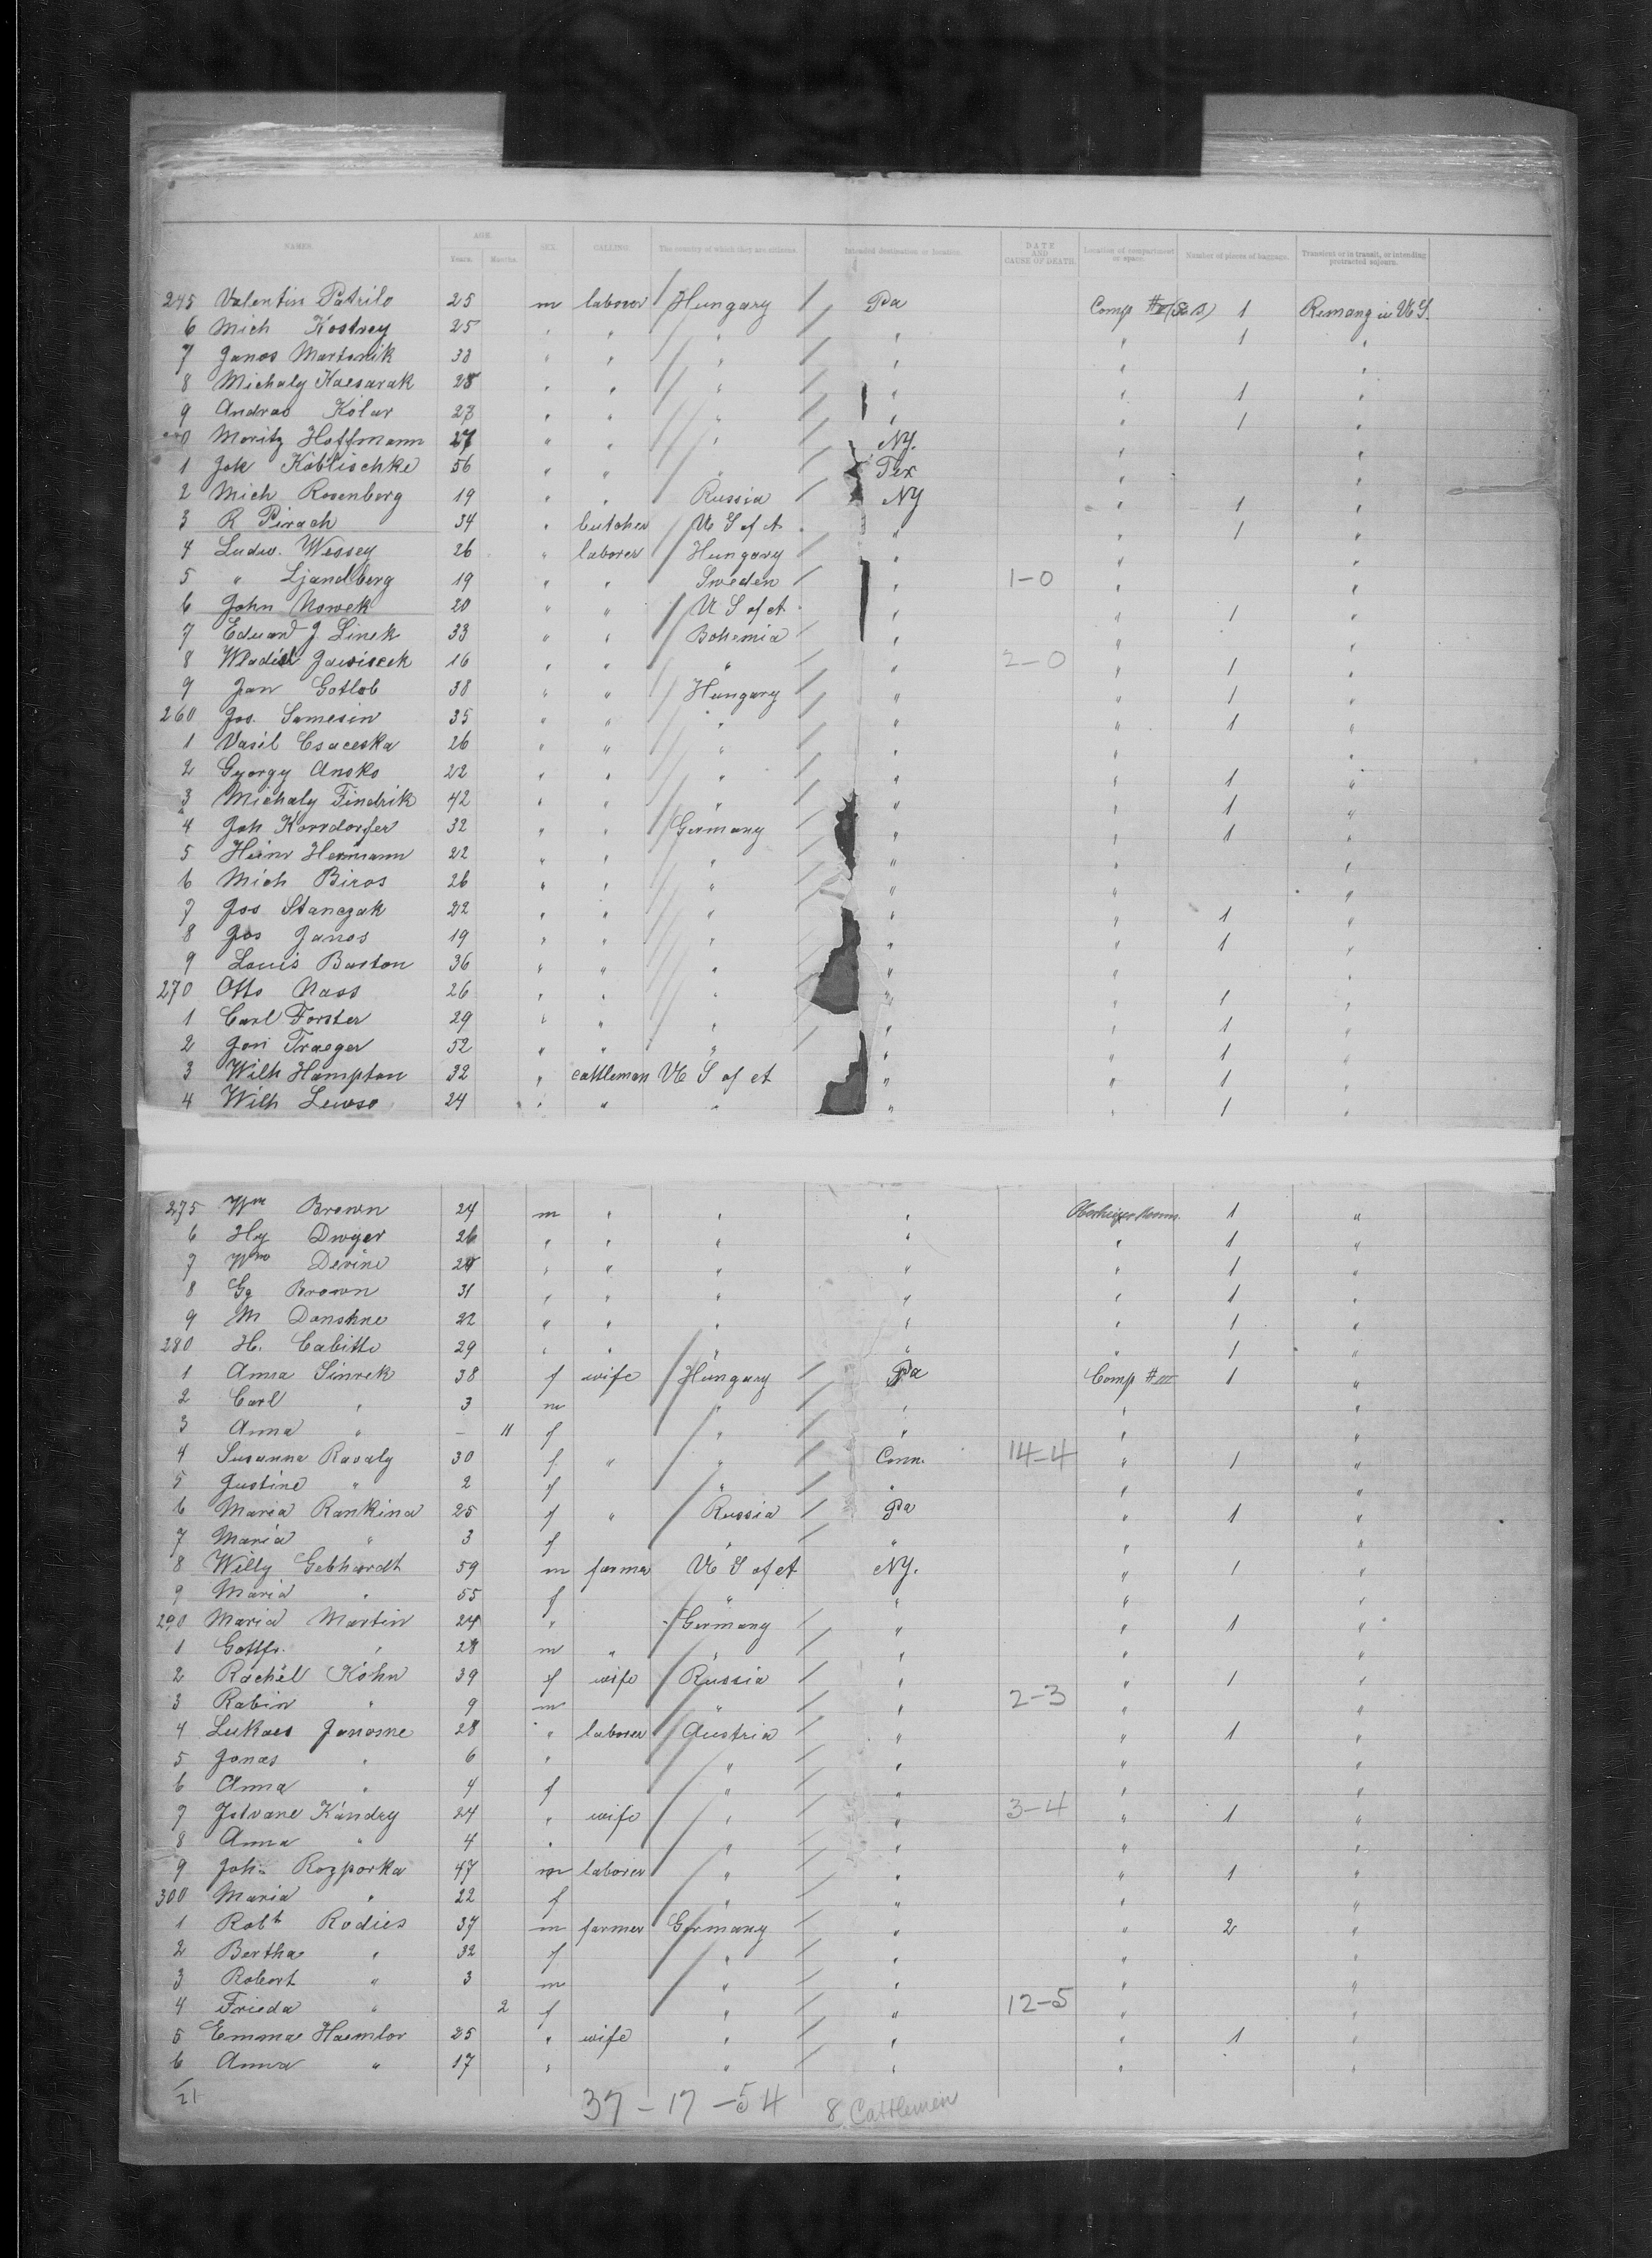 NAMES. AGE. SEX. CALLING. The country of which they are citizens. Intended destination or location. DATE AND CAUSE OF DEATH. Location of compartment or space. Number of pieces of baggage. Transient or in transit, or intending protracted sojourn.
Years. Months.
245 Valentin Petrilo 25 m laborer Hungary Pa Comp # 1 Remang in U S.
6 Mich Kostrey 25 " " " " " 1 "
7 Janos Martonik 38 " " " " " "
8 Michaly Kaesarak 28 " " " " " 1 "
9 Andras Kolar 27 " " " " " 1 "
0 Moritz Hoffmann 27 " " " NY. " "
1 Joh Koblischke 56 " " " Tex " "
2 Mich Rosenberg 19 " " Russia NY " 1 "
3 R Pirach 34 " butcher U S of A " " 1 "
4 Ludw. Wessey 26 " laborer Hungary " " "
5 " Ljandberg 19 " " Sweden " 1-0 " "
6 John Nowek 20 " " U S of A " " 1 "
7 Eduard J Linek 33 " " Bohemia " " "
8 Wladisl Jawiscek 16 " " " " 2-0 " 1 "
9 Jan Gotlob 38 " " Hungary " " 1 "
260 Jos. Samesin 35 " " " " " 1 "
1 Vasil Csaceska 26 " " " " " "
2 Gyorgy Ansko 22 " " " " " 1 "
3 Michaly Findrik 42 " " " " " 1 "
4 Joh Korrdorfer 32 " " Germany " " 1 "
5 Heinr Hermann 22 " " " " " "
6 Mich Biros 26 " " " " " "
7 Jos Stanczak 22 " " " " " 1 "
8 Jos Janos 19 " " " " " 1 "
9 Louis Baston 36 " " " " " "
270 Otto Nass 26 " " " " " 1 "
1 Carl Forster 29 " " " " " 1 "
2 Jon Traeger 52 " " " " " 1 "
3 Wilh Hampton 32 " cattleman U S of A " " 1 "
4 Wilh Lewso 24 " " " " " 1 "
275 Wm Brown 24 m " " " 1 "
6 Hy Dwyer 26 " " " " " 1 "
7 Wm Devine 24 " " " " " 1 "
8 Gg Brown 31 " " " " " 1 "
9 M Donohne 22 " " " " " 1 "
280 H. Cabitto 29 " " " " " 1 "
1 Anna Sinrek 38 f wife Hungary Pa Comp # III 1 "
2 Carl " 3 m " " " "
3 Anna " – 11 f " " " "
4 Susanna Ravaly 30 f " " Conn. 14-4 " 1 "
5 Justine " 2 f " " " "
6 Maria Rankina 25 f " Russia Pa " 1 "
7 Maria " 3 f " " " "
8 Willy Gebhardt 59 m farmer U S of A NY. " 1 "
9 Maria " 55 f " " " "
290 Maria Martin 24 " Germany " " 1 "
1 Gottfr. " 28 m " " " " "
2 Rachel Kohn 39 f wife Russia " " 1 "
3 Rabin " 9 m " " 2-3 " "
4 Lukacs Janosne 28 " laborer Austria " " 1 "
5 Jonas " 6 " " " " "
6 Anna " 4 f " " " "
7 Istvane Kandry 24 " wife " " 3-4 " 1 "
8 Anna " 4 " " " " "
9 Joh. Rozporka 47 m laborer " " " 1 "
300 Maria " 22 f " " " "
1 Robt Rodies 37 m farmer Germany " " 2 "
2 Bertha " 32 f " " " "
3 Robert " 3 m " " " "
4 Frieda " 2 f " " 12-5 " "
5 Emma Haemlor 25 " wife " " " 1 "
6 Anna " 17 " " " " "
21
37 - 17 - 54 8 Cattlemen